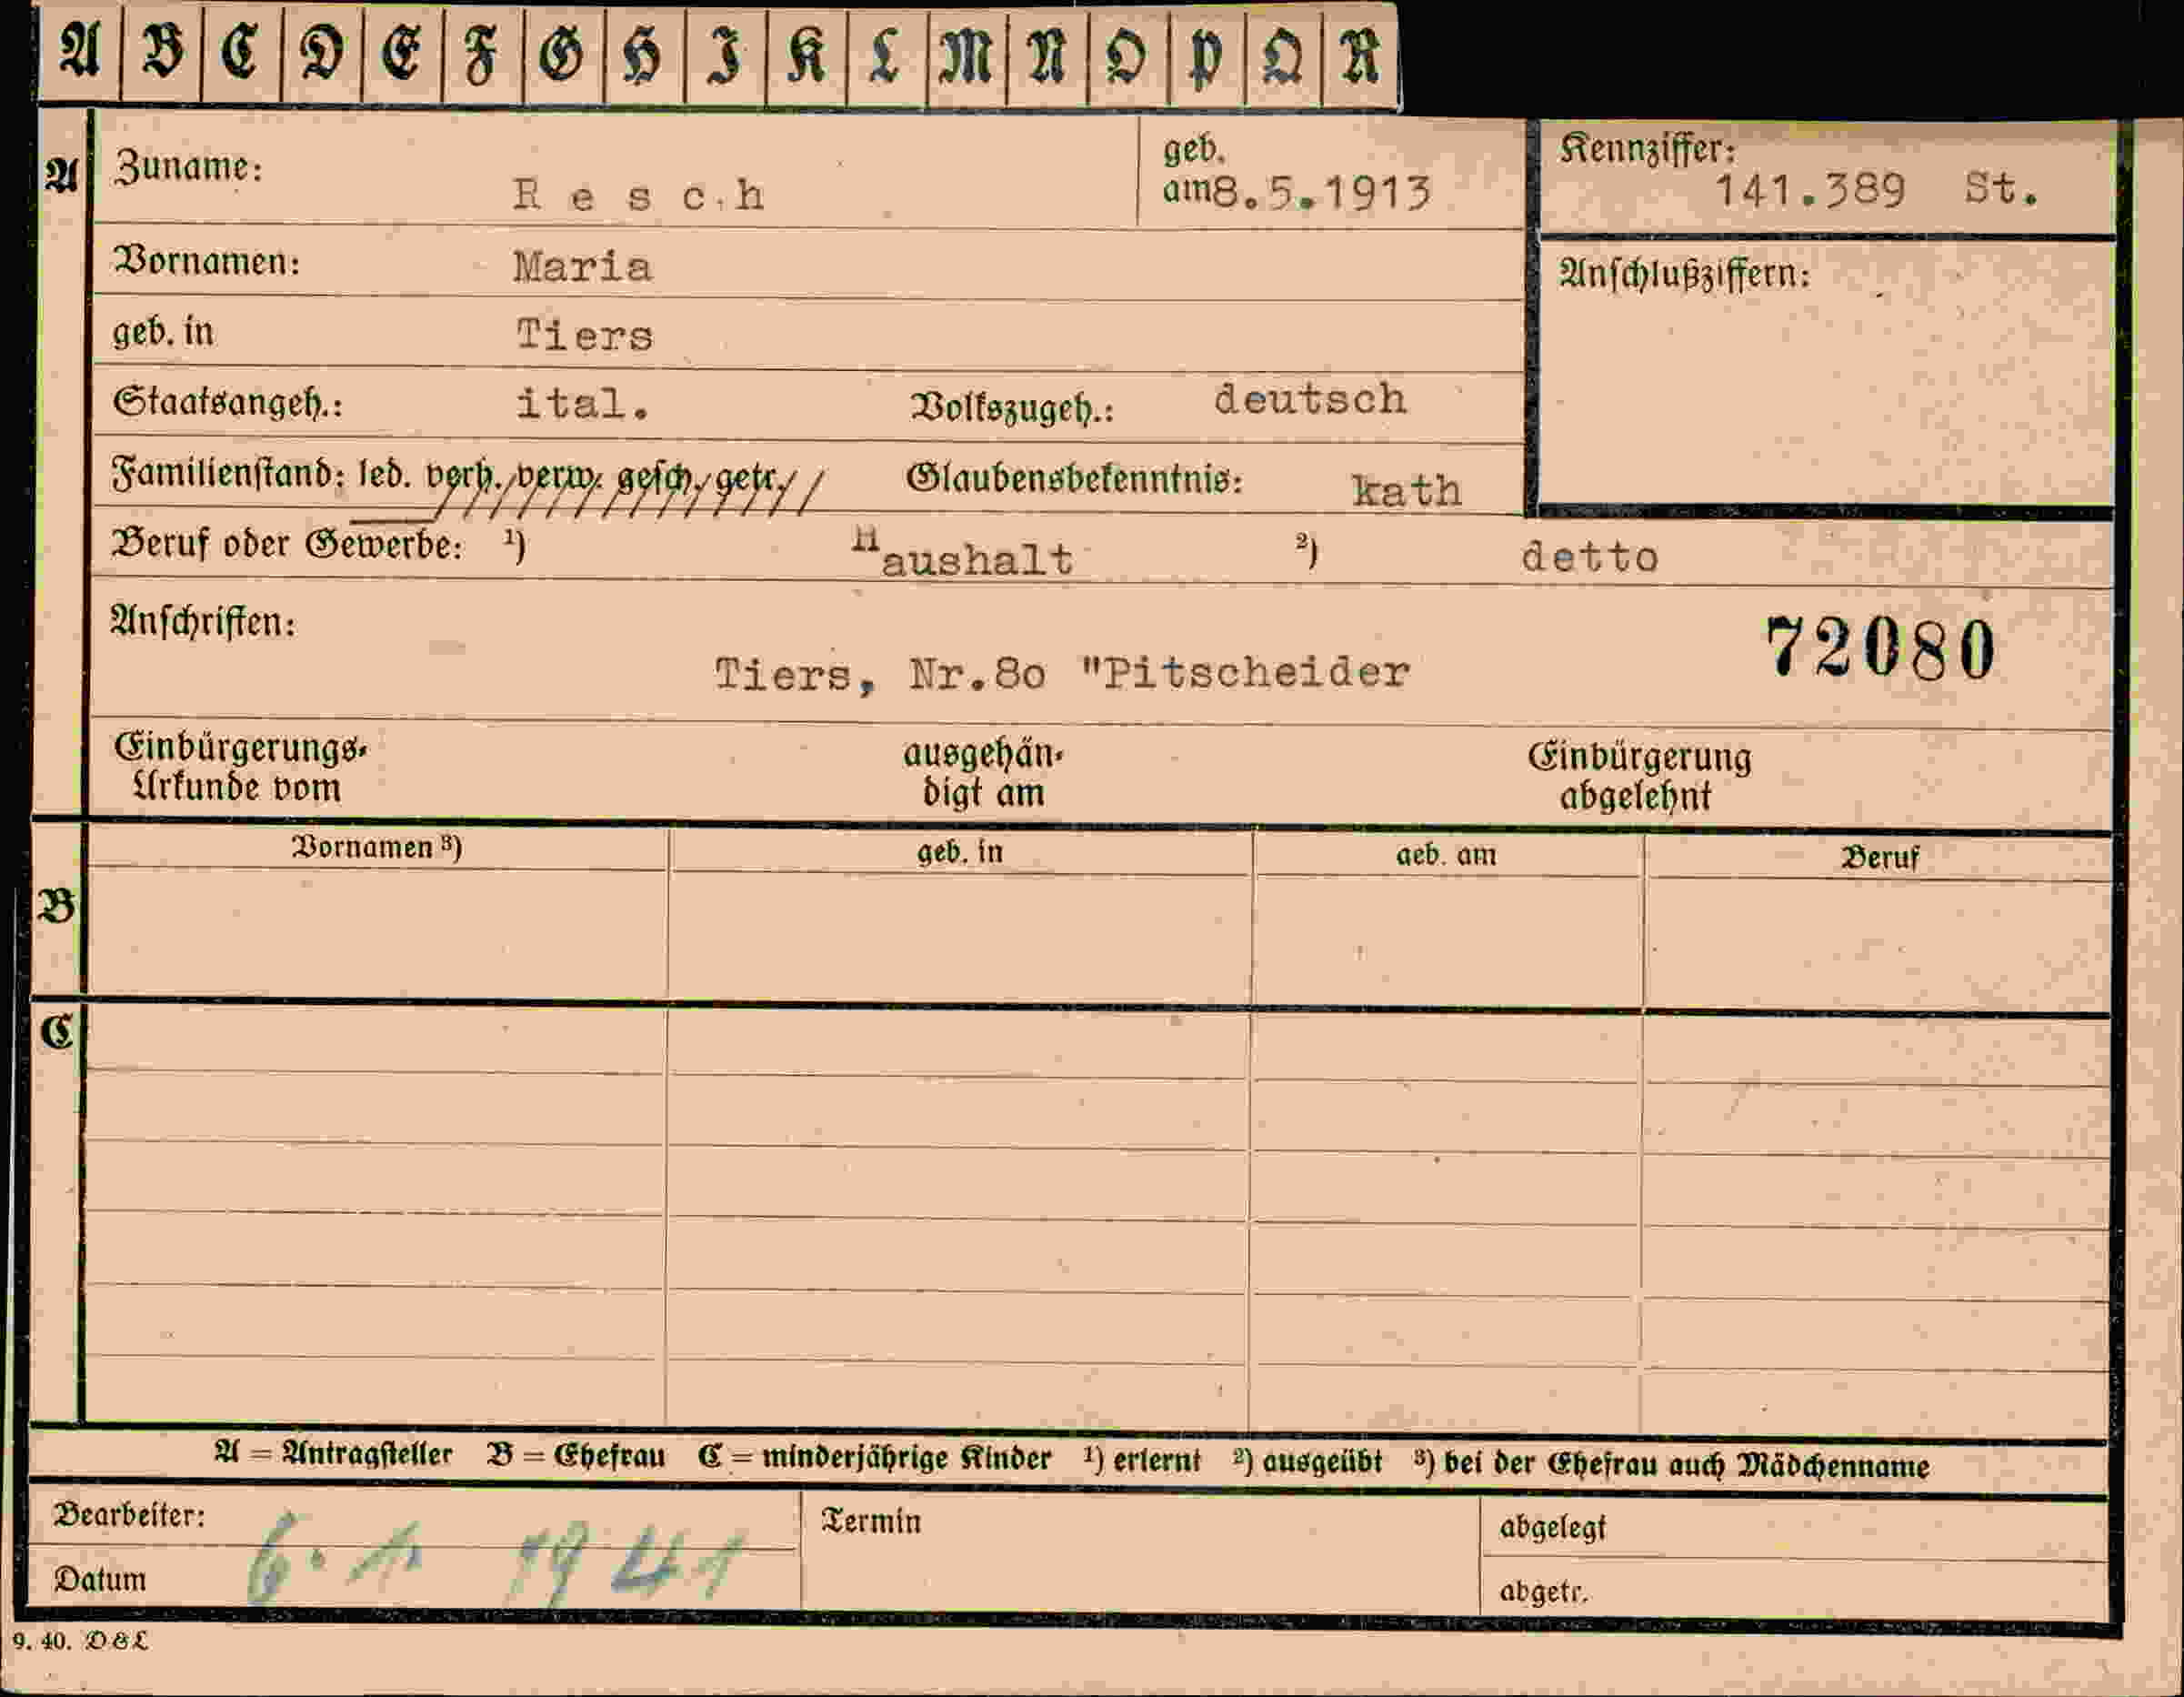 A B C D E F G H I K L M N O P Q R
A Zuname: R e s c h geb. am 8.5.1913 Kennziffer: 141.389 St.
Vornamen: Maria Anschlußziffern:
geb. in Tiers
Staatsangeh.: ital. Volkszugeh.: deutsch
Familienstand: led. verh. verw. gesch. getr. Glaubensbekenntnis: kath
Beruf oder Gewerbe: ¹) Haushalt ²) detto
Anschriften: 72080
Tiers, Nr.8o "Pitscheider
Einbürgerungs- ausgehän- Einbürgerung
Urkunde vom digt am abgelehnt
Vornamen ³) geb. in geb. am Beruf
B
C
A = Antragsteller B = Ehefrau C = minderjährige Kinder ¹) erlernt ²) ausgeübt ³) bei der Ehefrau auch Mädchenname
Bearbeiter: Termin abgelegt
Datum 6. 1 1941 abgetr.
9. 40. D&L